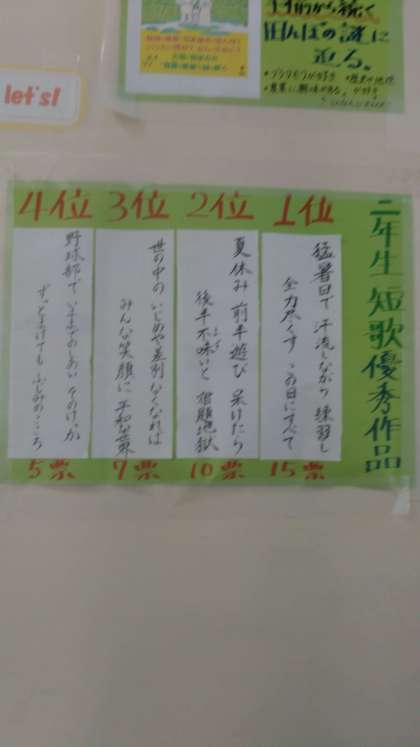 let's!
田んぼの謎に
迫る。
二年生 短歌優秀作品
1位
猛暑日で 汗流しながら 練習し
全力尽くす この日にすべて
15票
2位
夏休み 前半遊び 呆けたら
後半不味いと 宿題地獄
10票
3位
世の中の いじめや差別 なくなれば
みんな笑顔に 平和な世界
7票
4位
野球部で
ずっとまけても ふじみのこころ
5票